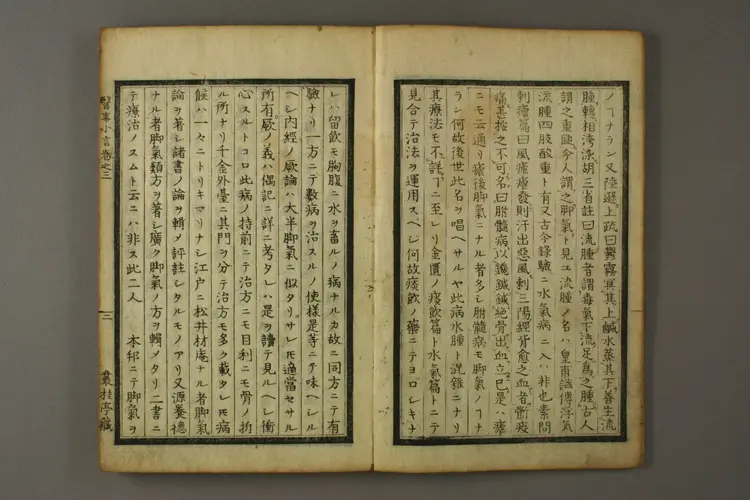 ノヿナラン又陸遜上疏曰霧冥其上鹹水蒸其下善生流
腫轉相洿染胡三省註曰流腫者謂毒氣下流足爲之腫古人
謂之重腿今人謂之脚氣ト見ユ流腫ノ名ハ皇甫謐傳浮氣
流腫四肢酸重ト有又古今錄驗ニ水氣病ニ入ハ非也素問
刺瘧篇曰風瘧瘧發則汗出惡風刺三陽經背愈之血者䯒痠
痛甚按之不可名曰胕髓病以鑱鍼鍼絶骨出血立已是ハ瘧
ニモ云通リ瘧後脚氣ニナル者多シ胕髓病モ脚氣ノヿナ
ラン何故後世此名ヲ唱ヘサルヤ此病水腫ト混雜ニナリ
其療法モ不詳下ニ至レリ金匱ノ痰飮篇ト水氣篇トニテ
見合テ治法ヲ運用スベシ何故痰飮ノ藥ニテヨロシキナ
レハ留飮モ胸腹ニ水ヲ畜ルノ病ナルカ故ニ同方ニテ有
驗ナリ一方ニテ數病ヲ治スルノ使樣是等ニテ味ヘシル
ヘシ内經ノ厥論ハ大半脚氣ニ似タリサレ𪜈適當セサル
所有厥ノ義ハ偶記ニ詳ニ考タレハ是ヲ讀テ見ルヘシ衝
心スルトコロ此病ノ持前ニテ治方ニモ目利ニモ骨ノ折
ル所ナリ千金外臺ニ其門ヲ分テ治方モ多ク載タレ𪜈病
候ハ一々ニトリキマリナシ江戸ニ松井材庵ナル者脚氣
論ヲ著シ諸書ノ論ヲ輯メ評註シタルモノアリ又源養德
ナル者脚氣類方ヲ著シ廣ク脚氣ノ方ヲ輯メタリ二書ニ
テ療治ノスムト云ニハ非ス此二人 本邦ニテ脚氣ヲ
醫事小言卷之三
三
叢桂亭藏